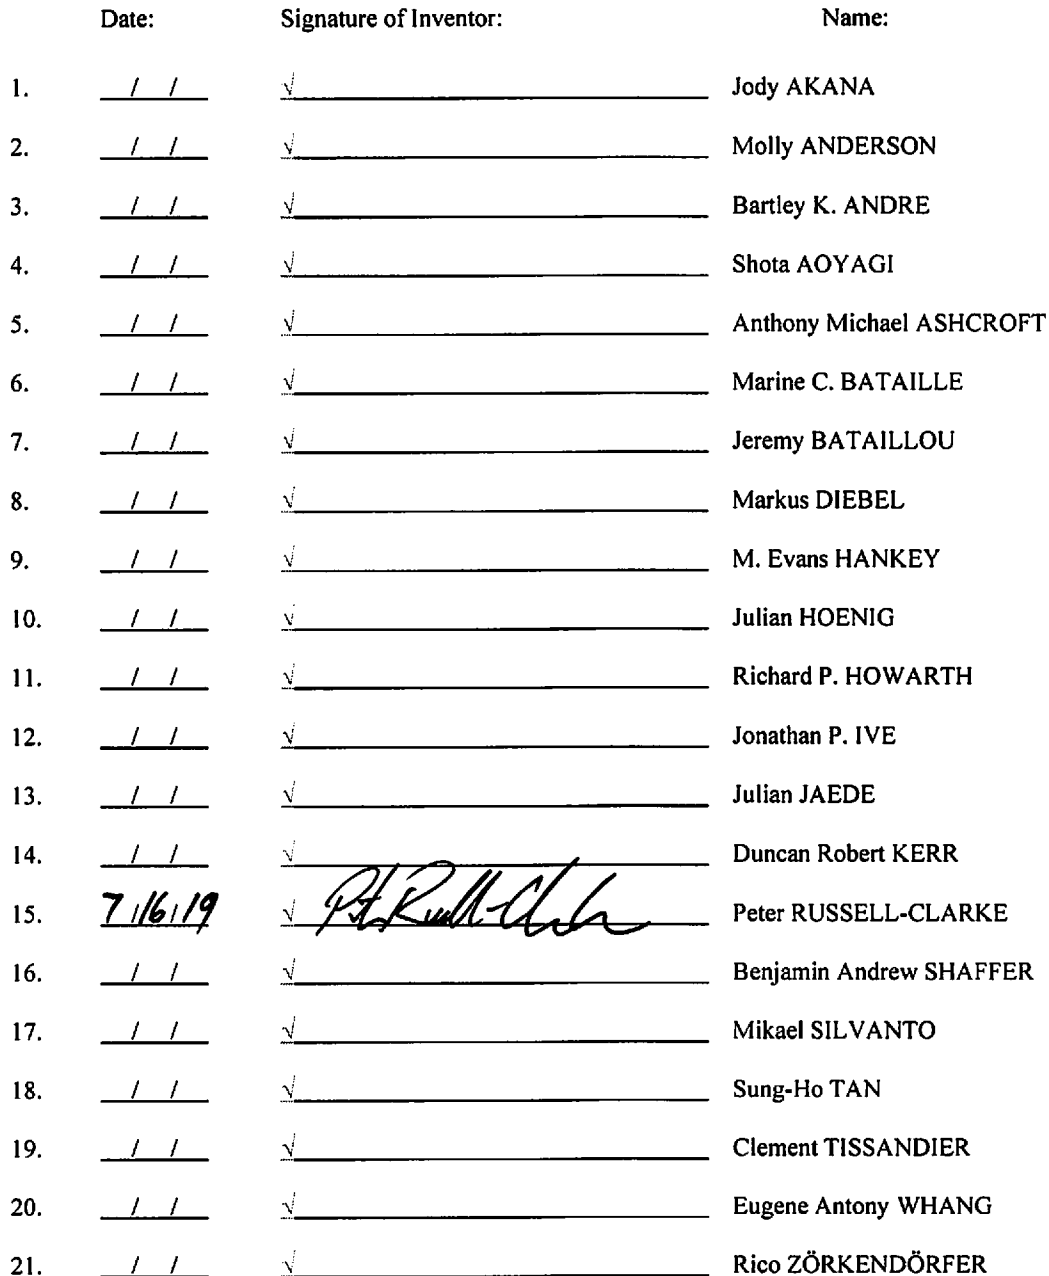 Date: Signature of Inventor: Name:
1. / / √ Jody AKANA
2. / / √ Molly ANDERSON
3. / / √ Bartley K. ANDRE
4. / / √ Shota AOYAGI
5. / / √ Anthony Michael ASHCROFT
6. / / √ Marine C. BATAILLE
7. / / √ Jeremy BATAILLOU
8. / / √ Markus DIEBEL
9. / / √ M. Evans HANKEY
10. / / √ Julian HOENIG
11. / / √ Richard P. HOWARTH
12. / / √ Jonathan P. IVE
13. / / √ Julian JAEDE
14. / / √ Duncan Robert KERR
15. 7/16/19 √ Peter RUSSELL-CLARKE
16. / / √ Benjamin Andrew SHAFFER
17. / / √ Mikael SILVANTO
18. / / √ Sung-Ho TAN
19. / / √ Clement TISSANDIER
20. / / √ Eugene Antony WHANG
21. / / √ Rico ZÖRKENDÖRFER